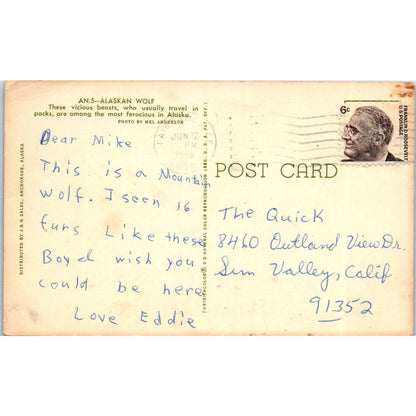 AN.5—ALASKAN WOLF
These vicious beasts, who usually travel in
packs, are among the most ferocious in Alaska.
PHOTO BY MEL ANDERSON
Dear Mike
This is a Mountain
Wolf. I seen 16
furs Like these
Boy I wish you
could be here
Love Eddie
DISTRIBUTED BY J & H SALES, ANCHORAGE, ALASKA
JUN 12
PM
POST CARD
6¢
FRANKLIN D. ROOSEVELT
U.S. POSTAGE
The Quick
8460 Outland View Dr.
Sun Valley, Calif
91352